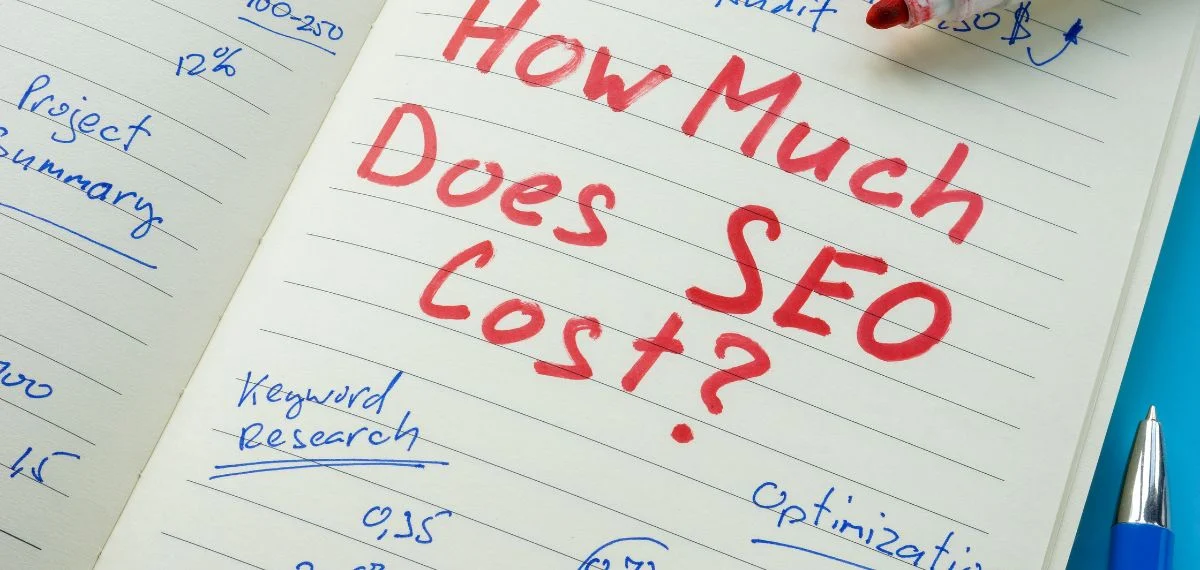 100-250
12%
Project
Summary
1,5
Audit
How Much
Does SEO
Cost?
Keyword
Research
0,35